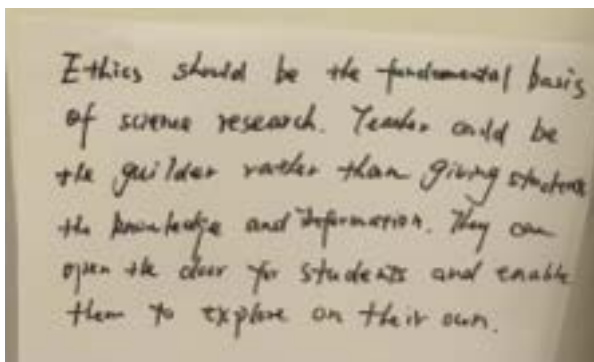 Ethics should be the fundamental basis
of science research. Teacher could be
the guilder rather than giving students
the knowledge and information. They can
open the door for students and enable
them to explore on their own.